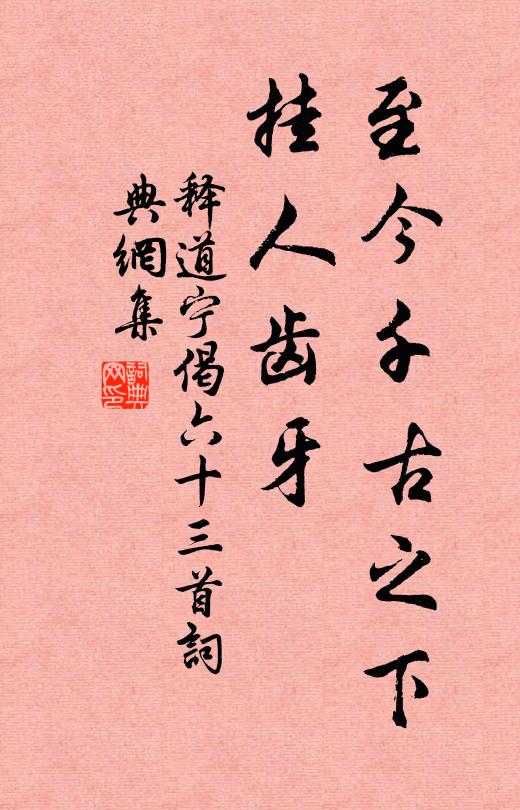 至今千古之下
挂人齿牙
释道宁偈六十三首詞
典網集
詞典网印